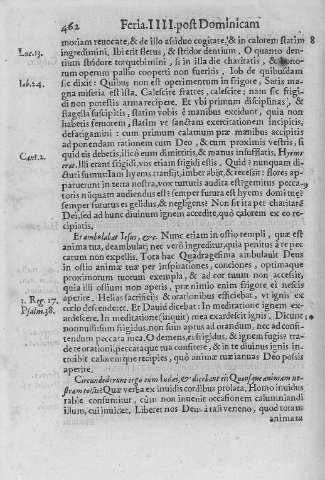 462 Feria. IIII. post Dominicam
moriam reuocate, & de illo assidue cogitate, & in calorem statim 8
Luc. 13. ingrediemini, Ibi erit fletus, & stridor dentium. O quanto den-
tium stridore torquebimini, si in illa die charitatis, & bono-
rum operum pallio cooperti non fueritis, Iob de quibusdam
Iob. 24. sic dixit: Quibus non est operimentum in frigore, Satis ma-
gna miseria est ista. Calescite fratres, calescite; nam sic frigi-
di non potestis arma recipere. Et vbi primum disciplinas, &
flagella suscipitis, statim vobis è manibus excidunt, quia non
habetis feruorem, statim ve sanctam exercitationem incipitis,
defatigamini: cum primum calamum præ manibus accipitis
ad ponendam rationem cum Deo, & cum proximis vestris, si
quid eis debetis, illicò eum dimittitis, & manus insufflatis. Hyems
Cant. 2. erat. Illi erant frigidi, vos etiam frigidi estis. Quid è nunquam di-
cturi sumus: Iam hyems transijt, imber abijt, & recessit: flores ap-
paruerunt in terra nostra, vox turturis audita est: egemus pecca-
toris nunquam audiendus est? semper futura est hyems domi tuæ?
semper futurus es gelidus, & negligens? Non sit ita per charitatē
Dei, sed ad hunc diuinum ignem accedite, quò calorem ex eo re-
cipiatis.
Et ambulabat Iesus, &c. Nunc etiam in ostio templi, quæ est
anima tua, deambulat; nec verò ingreditur, quia penitus à te pec-
catum non expellis. Tota hac Quadragesima ambulauit Deus
in ostio animæ tuæ per inspirationes, conciones, optimaque
proximorum tuorum exempla, & ad cor tuum non accessit,
quia illi ostium non aperis, præ nimio enim frigore ei nescis
1. Reg. 17. aperire. Helias sacrificijs & orationibus efficiebat, vt ignis ex
Psalm. 38. cœlo descenderet. Et Dauid dicebat: In meditatione ignem ex-
ardescere. In meditatione (inquit) mea exardescit ignis. Dicunt
nonnulli: sum frigidus, non sum aptus ad orandum, nec ad confi-
tendum peccata mea. O demens, es frigidus, & ignem fugis? tra-
de te orationi, peccataque tua confitere, & in te diuinus ignis in-
troibit caloremque recipies, quò animæ tuæ ianuas Deo possis
aperire.
Circundederunt ergo eum Iudæi, & dicebant ei: Quousque animam no-
stram tollis? Quæ verba ex inuidis cordibus prolata. Homo inuidus
rabie consumitur, cùm non inuenit occasionem calumniandi
illum, cui inuidet. Liberet nos Deus à tali veneno, quod totam
animata